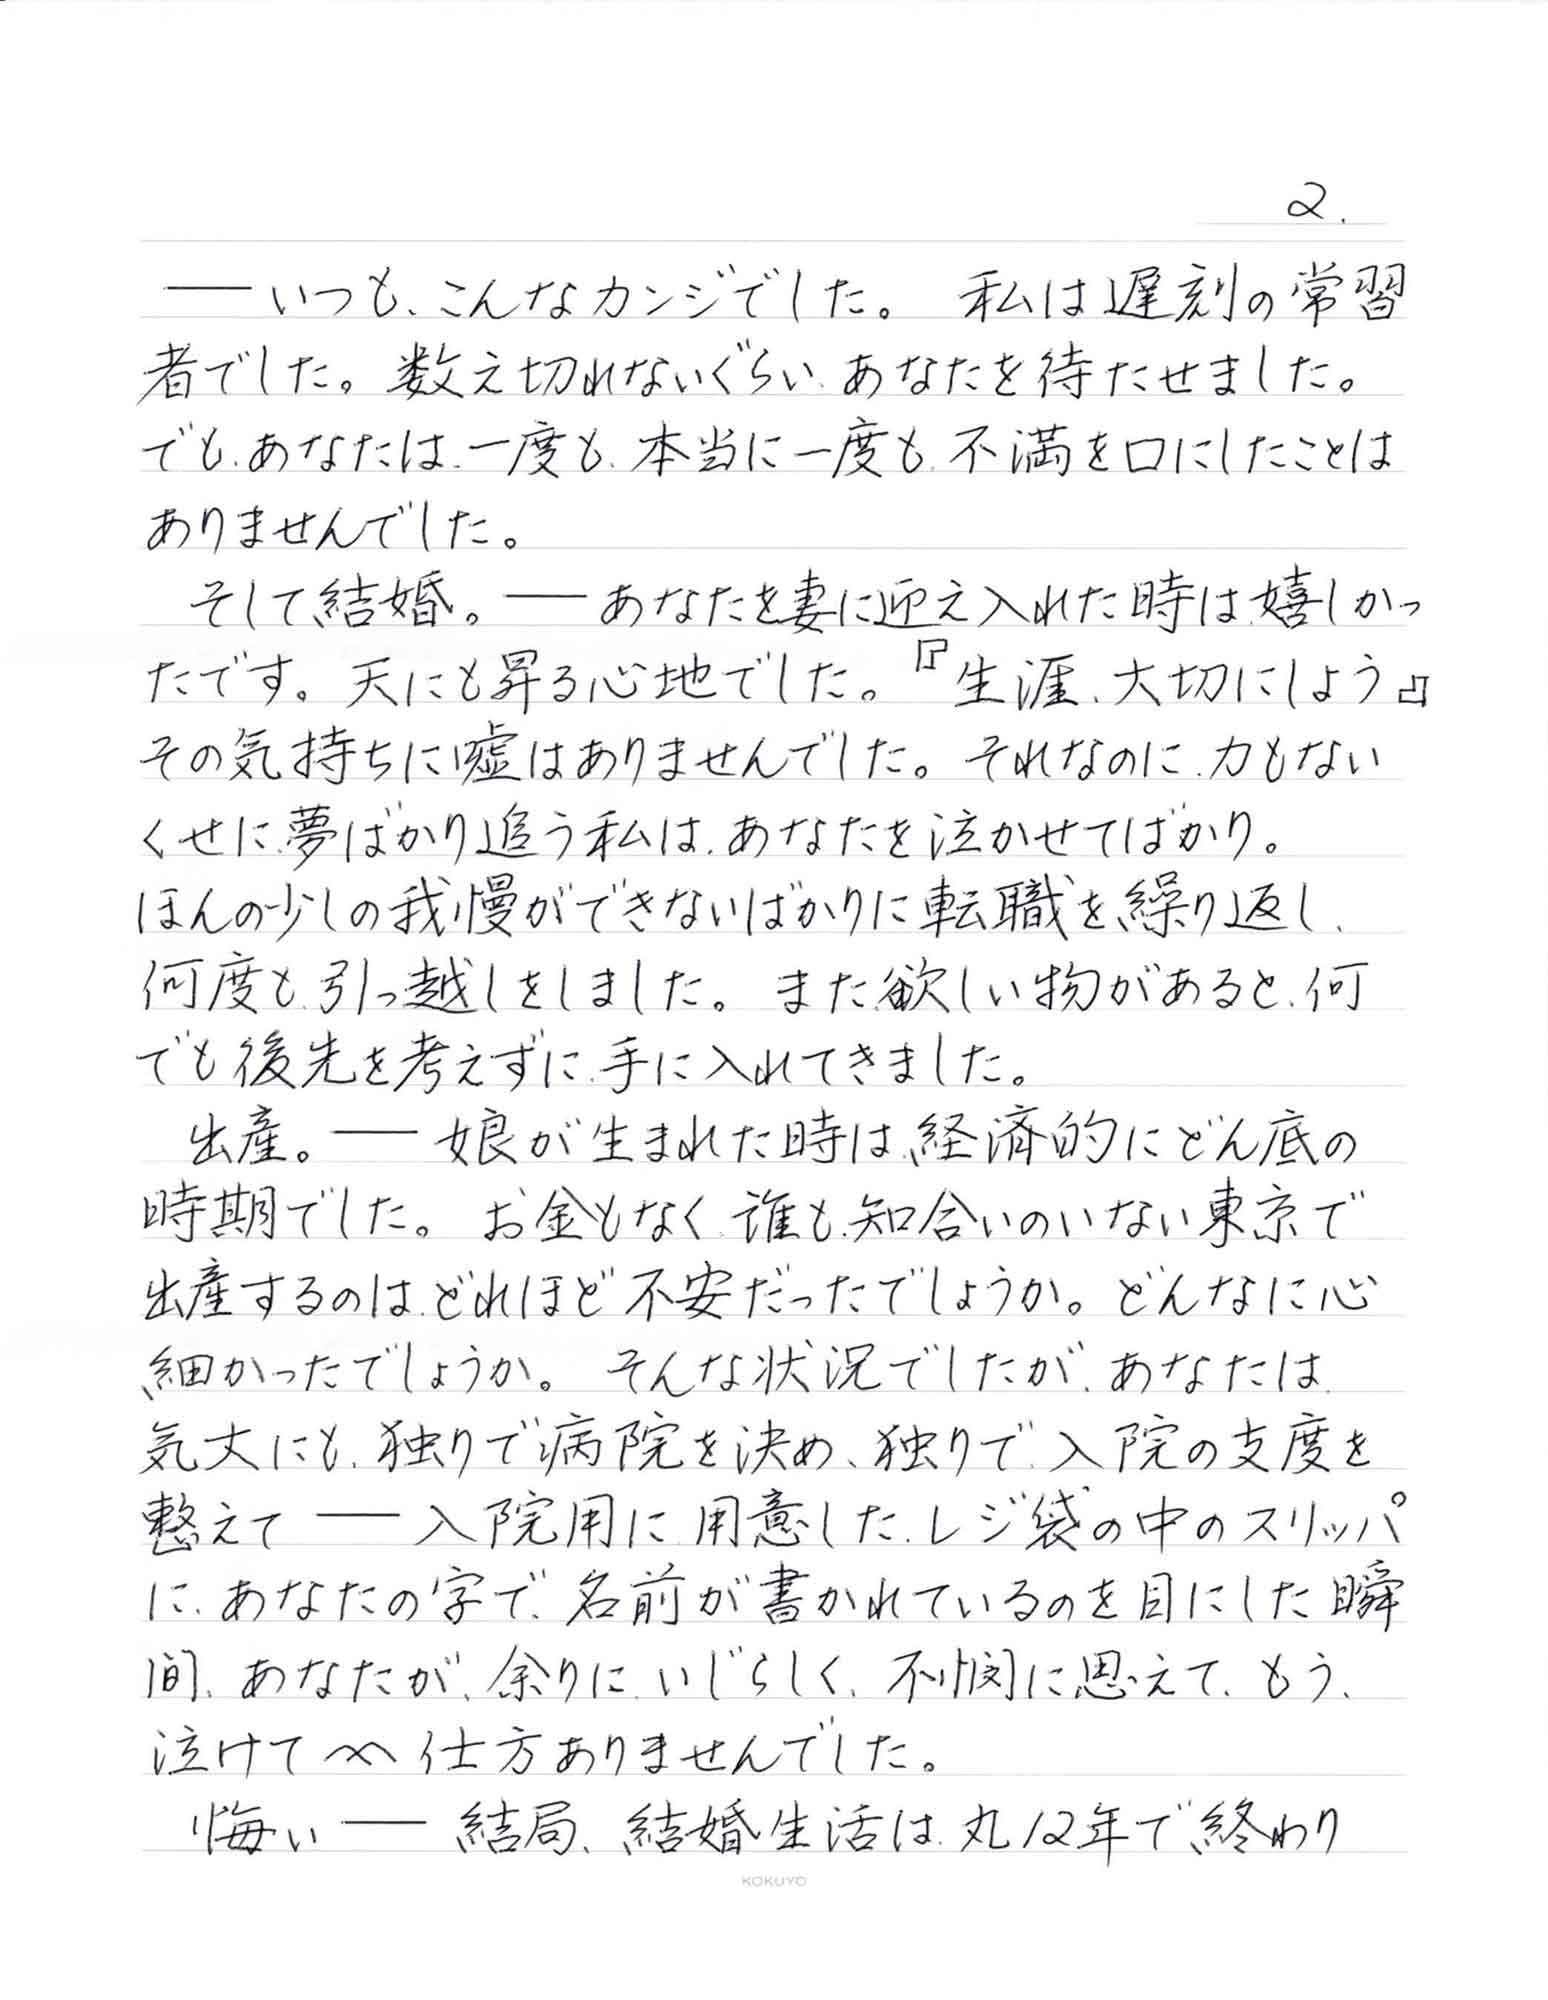 2.
──いつも、こんなカンジでした。 私は遅刻の常習
者でした。数え切れないぐらい、あなたを待たせました。
でも、あなたは、一度も、本当に一度も、不満を口にしたことは
ありませんでした。
そして、結婚。──あなたを妻に迎え入れた時は、嬉しかっ
たです。天にも昇る心地でした。『生涯、大切にしよう』
その気持ちに嘘はありませんでした。それなのに、力もない
くせに、夢ばかり追う私は、あなたを泣かせてばかり。
ほんの少しの我慢ができないばかりに転職を繰り返し、
何度も、引っ越しをしました。また、欲しい物があると、何
でも後先を考えずに、手に入れてきました。
出産。──娘が生まれた時は、経済的にどん底の
時期でした。お金もなく、誰も、知合いのいない東京で
出産するのは、どれほど不安だったでしょうか。どんなに心
細かったでしょうか。そんな状況でしたが、あなたは、
気丈にも、独りで病院を決め、独りで、入院の支度を
整えて──入院用に、用意した、レジ袋の中のスリッパ
に、あなたの字で、名前が書かれているのを目にした瞬
間、あなたが、余りに、いじらしく、不憫に思えて、もう、
泣けて〰仕方ありませんでした。
悔い──結局、結婚生活は、丸12年で、終わり
KOKUYO